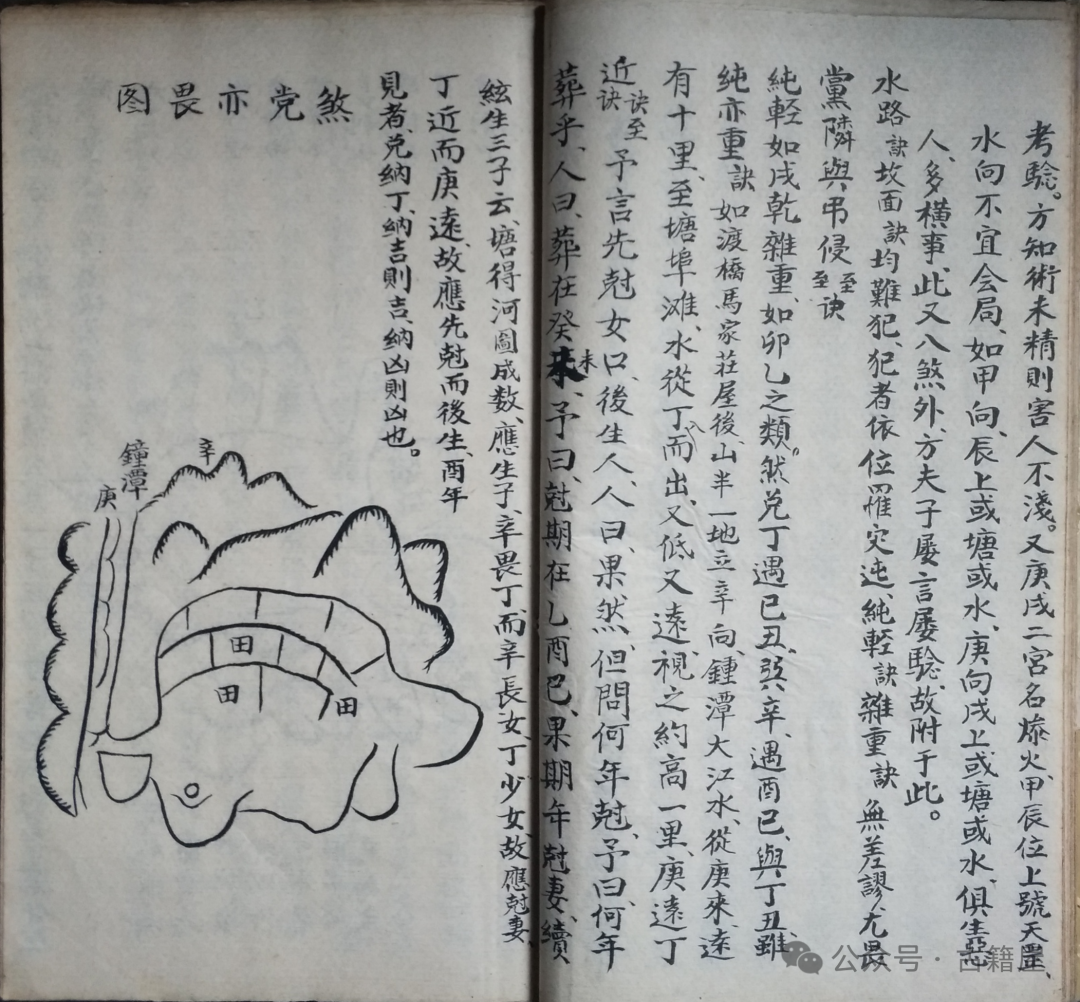 考驗。方知術未精則害人不淺。又庚戌二宮名燎火、甲辰位上號天罡、
水向不宜会局、如甲向、辰上或塘或水、庚向戌上或塘或水、俱生惡
人、多橫事、此又八煞外、方夫子屢言屢驗、故附于此。
水路訣坟面訣均難犯、犯者依位罹灾迍、純輕訣雜重訣無差謬、尤畏
黨隣與弔侵至訣
純輕如戌乾雜重、如卯乙之類。然兑丁遇巳丑、巽辛、遇酉巳、與丁丑雖
純亦重訣如渡橋馬家莊屋後、山半一地立辛向、鍾潭大江水、從庚來、遠
有十里、至塘埠滩、水從丁而出、又低又遠、視之約高一里、庚遠丁
近訣訣至予言先尅女口、後生人、人曰、果然、但問何年尅、予曰、何年
葬乎、人曰、葬在癸未未、予曰、尅期在乙酉巳、果期年尅妻、續
絃生三子云、塘得河圖成数、應生子、辛畏丁、而辛長女、丁少女、故應尅妻、
丁近而庚遠、故應先尅而後生、酉年
見者、兑納丁、納吉則吉、納凶則凶也。
煞党亦畏图
辛
鐘潭
庚
田
田
田
公众号·古籍